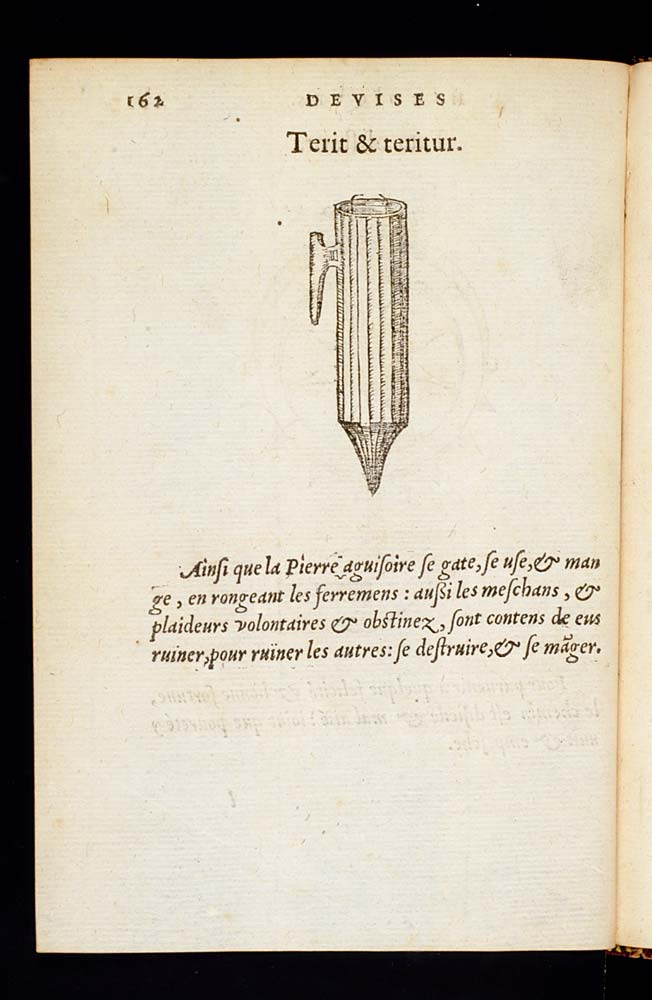 162 DEVISES
Terit & teritur.
Ainſi que la Pierre aguiſoire ſe gate, ſe uſe, & man
ge, en rongeant les ferremens : auſsi les meſchans, &
plaideurs volontaires & obſtinez, ſont contens de eus
ruiner, pour ruïner les autres: ſe deſtruire, & ſe mãger.